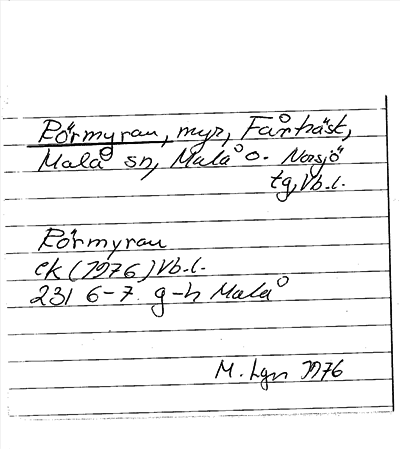 Rörmyran, myr, Fårträsk,
Malå sn, Malå o. Norsjö
tg, Vb.l.
Rörmyran
ek (1976) Vb.l.
23I 6-7 g-h Malå
M. Lgn 1976